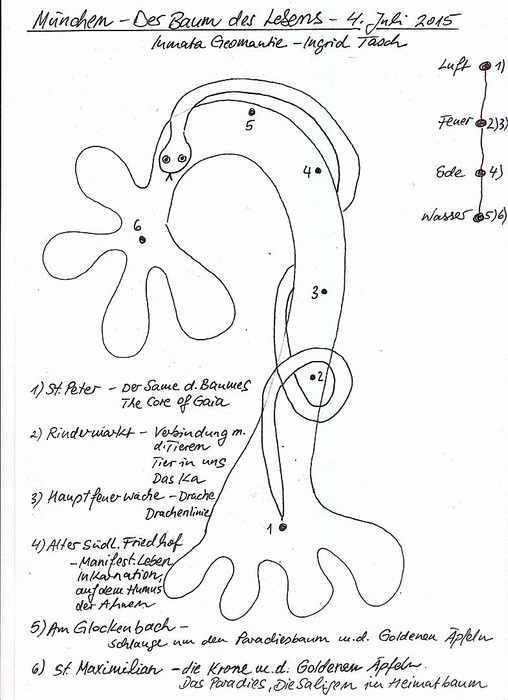 München - Der Baum des Lebens - 4. Juli 2015
Inmata Geomantie - Ingrid Tasch
Luft 1)
Feuer 2)3)
Erde 4)
Wasser 5)6)
5
4
6
3
2
1
1) St. Peter - Der Same d. Baumes
The Core of Gaia
2) Rindermarkt - Verbindung m.
d. Tieren
Tier in uns
Das Ka
3) Hauptfeuerwache - Drache,
Drachenlinie
4) Alter Südl. Friedhof
- Manifest. Leben
Inkarnation,
auf dem Humus
der Ahnen
5) Am Glockenbach -
Schlange um den Paradiesbaum m.d. Goldenen Äpfeln
6) St. Maximilian - die Krone m.d. Goldenen Äpfeln.
Das Paradies, Die Saligen im Heimatbaum